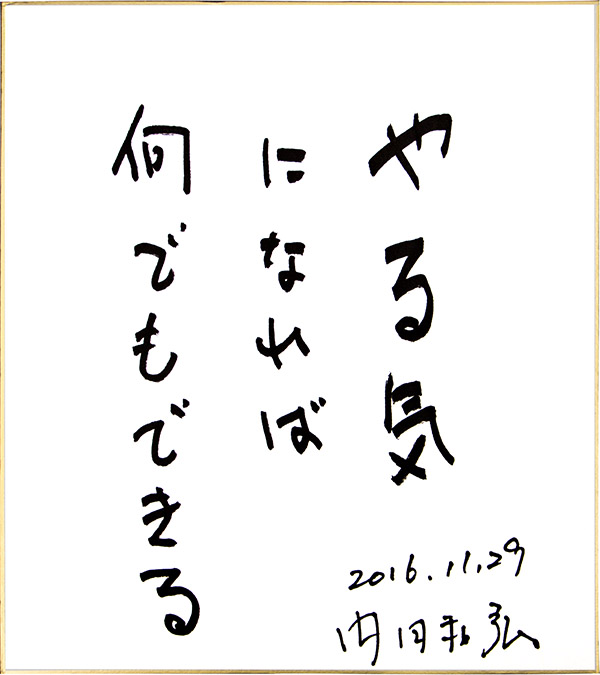 やる気
になれば
何でもできる
2016.11.29
内田和弘